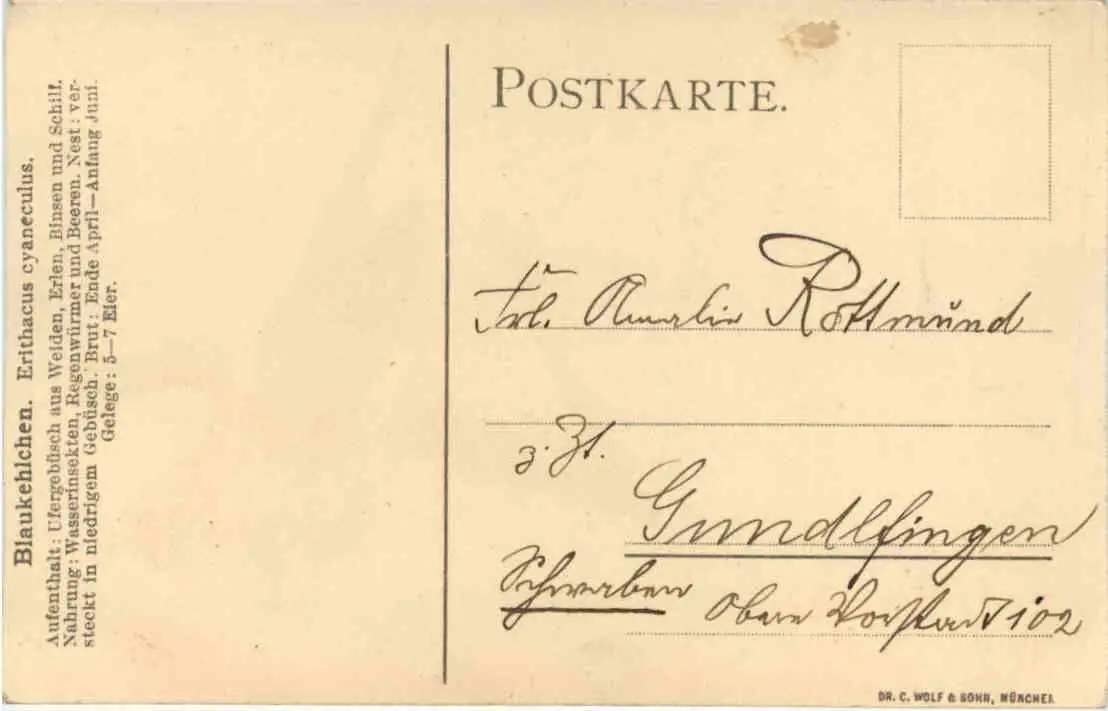 Blaukehlchen. Erithacus cyaneculus.
Aufenthalt: Ufergebüsch aus Weiden, Erlen, Binsen und Schilf.
Nahrung: Wasserinsekten, Regenwürmer und Beeren. Nest: ver-
steckt in niedrigem Gebüsch. Brut: Ende April—Anfang Juni.
Gelege: 5—7 Eier.
POSTKARTE.
Frl. Amalie Rottmund
z. Zt.
Gundlfingen
Schwaben
Obere Vorstadt 102
DR. C. WOLF & SOHN, MÜNCHEN